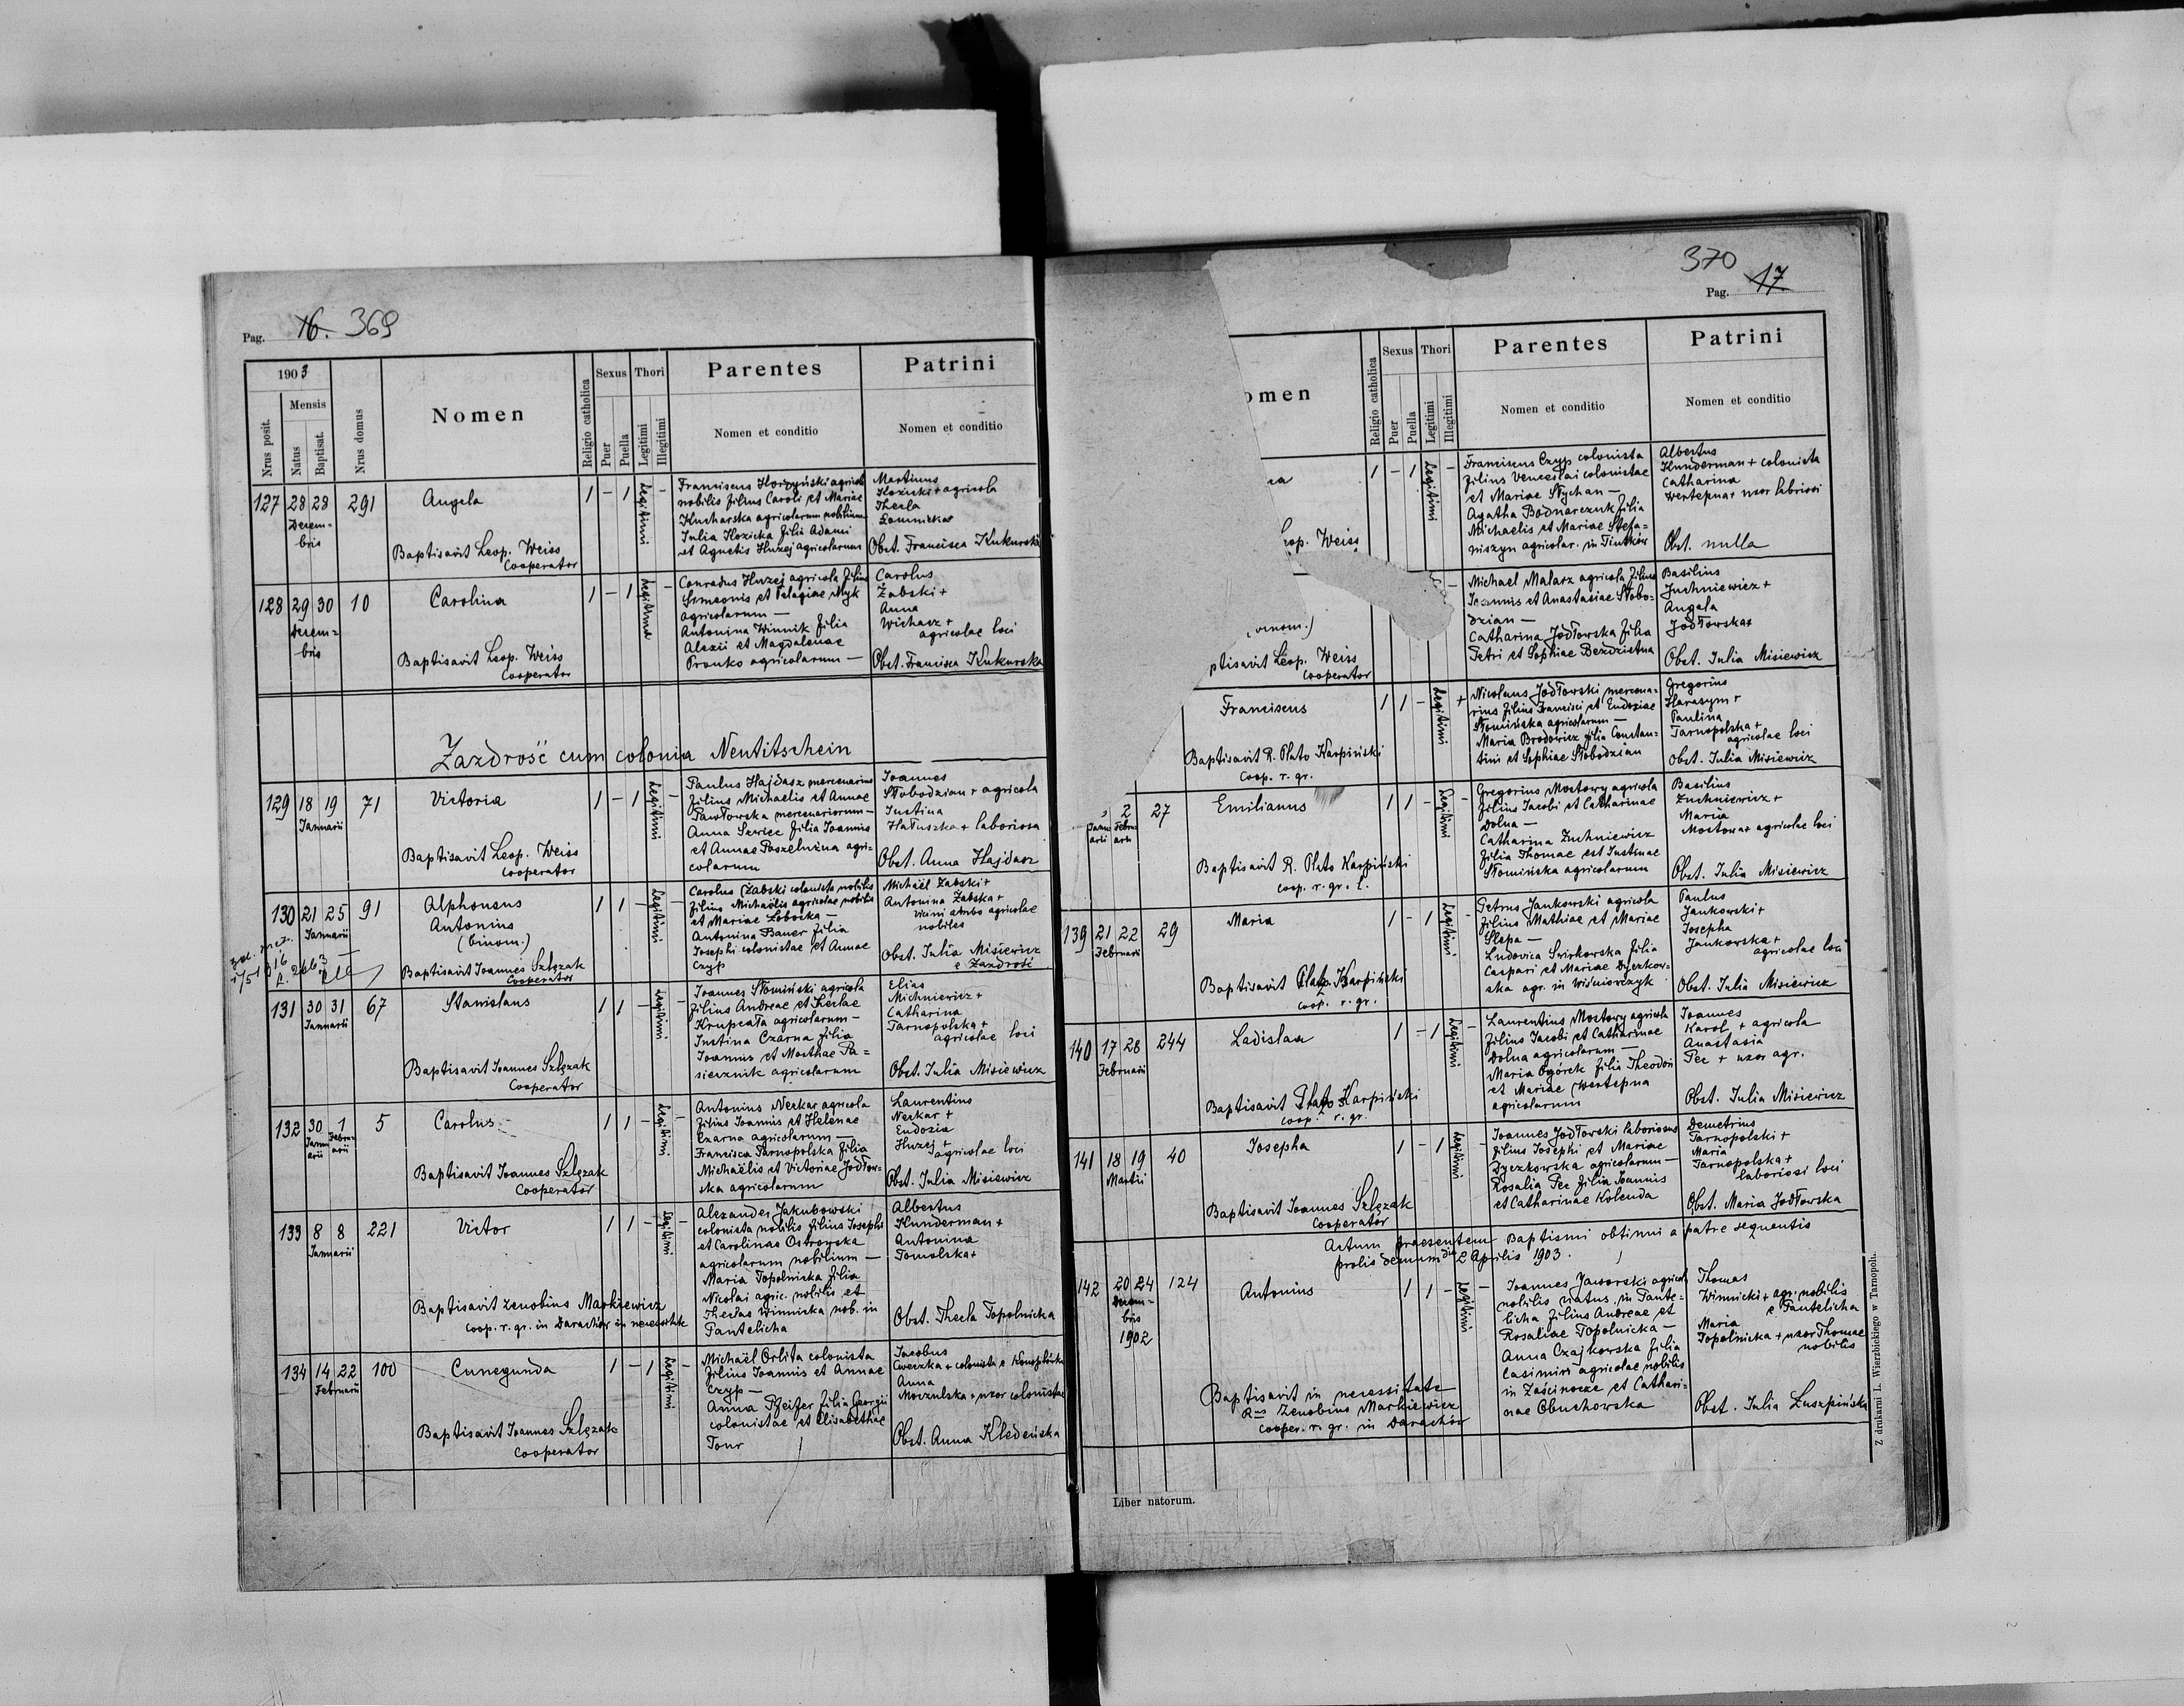 Pag. 16. 369
1903
Nrus posit.
Mensis
Natus
Baptisat.
Nrus domus
Nomen
Religio catholica
Sexus
Puer
Puella
Thori
Legitimi
Illegitimi
Parentes
Nomen et conditio
Patrini
Nomen et conditio
127 28 28 291 Angela 1 – 1 Legitimi –
Decem=
bris
Baptisavit Leop. Weiss
Cooperator
Franciscus Horzyński agricola
nobilis filius Caroli et Mariae
Kucharska agricolarum nobilium
Julia Kozicka filia Adami
et Agnetis Huzej agricolarum
Martinus
Kozicki + agricola
Thecla
Łomnicka
Obst. Francisca Kukurska
128 29 30 10 Carolina 1 – 1 Legitima –
Decem=
bris
Baptisavit Leop. Weiss
Cooperator
Conradus Huzej agricola filius
Simeonis et Pelagiae Myk
agricolarum —
Antonina Winnik filia
Alexii et Magdalenae
Pronko agricolarum —
Carolus
Żabski +
Anna
Wichasz +
agricolae loci
Obst. Francisca Kukurska
Zazdrość cum colonia Neutitschein
129 18 19 71 Victoria 1 – 1 Legitimi –
Januarii
Baptisavit Leop. Weiss
Cooperator
Paulus Hajdasz mercenarius
filius Michaelis et Annae
Pawłowska mercenariorum —
Anna Szwiec filia Joannis
et Annae Paszelnina agri=
colarum
Joannes
Słobodzian + agricola
Justina
Hałuszka + laboriosa
Obst. Anna Hajdasz
130 21 25 91 Alphonsus 1 1 – Legitimi –
Januarii
Antonius
(binom.)
Baptisavit Joannes Szlęzak
Cooperator
Carolus Żabski colonista nobilis
filius Michaëlis agricolae nobilis
et Mariae Łoboska —
Antonina Bauer filia
Josephi colonistae et Annae
Czyp
Michaël Żabski +
Antonina Żabska +
vicini ambo agricolae
nobiles
Obst. Julia Misiewicz
e Zazdrość
131 30 31 67 Stanislaus 1 1 – Legitimi –
Januarii
Baptisavit Joannes Szlęzak
Cooperator
Joannes Słomiński agricola
filius Andreae et Theclae
Krupcała agricolarum —
Justina Czarna filia
Joannis et Marthae Pa=
siecznik agricolarum
Elias
Michniewicz +
Catharina
Tarnopolska +
agricolae loci
Obst. Julia Misiewicz
132 30 1 5 Carolus 1 1 – Legitimi –
Janu=
arii
Febru=
arii
Baptisavit Joannes Szlęzak
Cooperator
Antonius Neckar agricola
filius Joannis et Helenae
Czarna agricolarum —
Francisca Tarnopolska filia
Michaëlis et Victoriae Jodłow=
ska agricolarum
Laurentius
Neckar +
Eudoxia
Huzej +
agricolae loci
Obst. Julia Misiewicz
133 8 8 221 Victor 1 1 – Legitimi –
Januarii
Baptisavit Zenobius Markiewicz
coop. r. gr. in Darachów in necessitate
Alexander Jakubowski
colonista nobilis filius Josephi
et Carolinae Ostrowska
agricolarum nobilium —
Maria Topolnicka filia
Nicolai agric. nobilis et
Theclae Winnicka nob. in
Pantelicha
Albertus
Kunderman +
Antonina
Tomolska +
Obst. Thecla Topolnicka
134 14 22 100 Cunegunda 1 – 1 Legitimi –
Februarii
Baptisavit Joannes Szlęzak
Cooperator
Michaël Orlita colonista
filius Joannis et Annae
Czyp —
Anna Pfeifer filia Georgii
colonistae et Elisabethae
Tour
Jacobus
Cweczka + colonista e Konopkówka
Anna
Moczulska + uxor colonistae
Obst. Anna Kledeńska
370
Pag. 17
omen
Religio catholica
Sexus
Puer
Puella
Thori
Legitimi
Illegitimi
Parentes
Nomen et conditio
Patrini
Nomen et conditio
1 – 1 Legitimi –
eop. Weiss
Franciscus Czyp colonista
filius Venceslai colonistae
et Mariae Stychan —
Agatha Bodnarczuk filia
Michaelis et Mariae Stefa=
niszyn agricolar. in Tiutków
Albertus
Kunderman + colonista
Catharina
Wertepna + uxor laboriosi
Obst. nulla
ptisavit Leop. Weiss
Cooperator
Michael Malarz agricola filius
Joannis et Anastasiae Słobo=
dzian —
Catharina Jodłowska filia
Petri et Sophiae Bezdzietna
Basilius
Juchniewicz +
Angela
Jodłowska +
Obst. Julia Misiewicz
Franciscus 1 1 – Legitimi +
Baptisavit R. Plato Karpiński
Coop. r. gr.
Nicolaus Jodłowski mercena=
rius filius Francisci et Eudoxiae
Słomińska agricolarum —
Maria Brodowicz filia Constan=
tini et Sophiae Słobodzian
Gregorius
Harasym +
Paulina
Tarnopolska +
agricolae loci
Obst. Julia Misiewicz
2 27 Emilianus 1 1 – Legitimi –
Janu=
arii
Febru=
arii
Baptisavit R. Plato Karpiński
coop. r. gr. l.
Gregorius Mostowy agricola
filius Jacobi et Catharinae
Dolna —
Catharina Zuchniewicz
filia Thomae et Justinae
Słomińska agricolarum
Basilius
Zuchniewicz +
Maria
Mostowa + agricolae loci
Obst. Julia Misiewicz
139 21 22 29 Maria 1 – 1 Legitimi –
Februarii
Baptisavit Plato Karpiński
coop. r. gr.
Petrus Jankowski agricola
filius Mathiae et Mariae
Slepa —
Ludovica Swirkowska filia
Caspari et Mariae Dyczkow=
ska agr. in Wiśniowczyk
Paulus
Jankowski +
Josepha
Jankowska +
agricolae loci
Obst. Julia Misiewicz
140 17 28 244 Ladislaa 1 – 1 Legitimi –
Februarii
Baptisavit Plato Karpiński
coop. r. gr.
Laurentius Mostowy agricola
filius Jacobi et Catharinae
Dolna agricolarum —
Maria Ogórek filia Theodori
et Mariae Wertepna
agricolarum
Joannes
Karol + agricola
Anastasia
Pec + uxor agr.
Obst. Julia Misiewicz
141 18 19 40 Josepha 1 – 1 Legitimi –
Martii
Baptisavit Joannes Szlęzak
Cooperator
Joannes Jodłowski laboriosus
filius Josephi et Mariae
Dyczkowska agricolarum —
Rosalia Pec filia Joannis
et Catharinae Kolenda
Demetrius
Tarnopolski +
Maria
Tarnopolska +
laboriosi loci
Obst. Maria Jodłowska
Actum praesentem Baptismi obtinui a patre sequentis
prolis demum die 2 Aprilis 1903.
142 20 24 124 Antonius 1 1 – Legitimi –
Decem=
bris
1902
Baptisavit in necessitate
Rus Zenobius Markiewicz
cooper. r. gr. in Darachów
Joannes Jaworski agricola
nobilis natus in Pante=
licha filius Andreae et
Rosaliae Topolnicka —
Anna Czajkowska filia
Casimiri agricolae nobilis
in Zaścinocze et Cathari=
nae Obuchowska
Thomas
Winnicki + agr. nobilis
e Pantelicha
Maria
Topolnicka + uxor Thomae
nobilis
Obst. Julia Łuszpińska
Liber natorum.
Z drukarni L. Wierzbickiego w Tarnopolu.